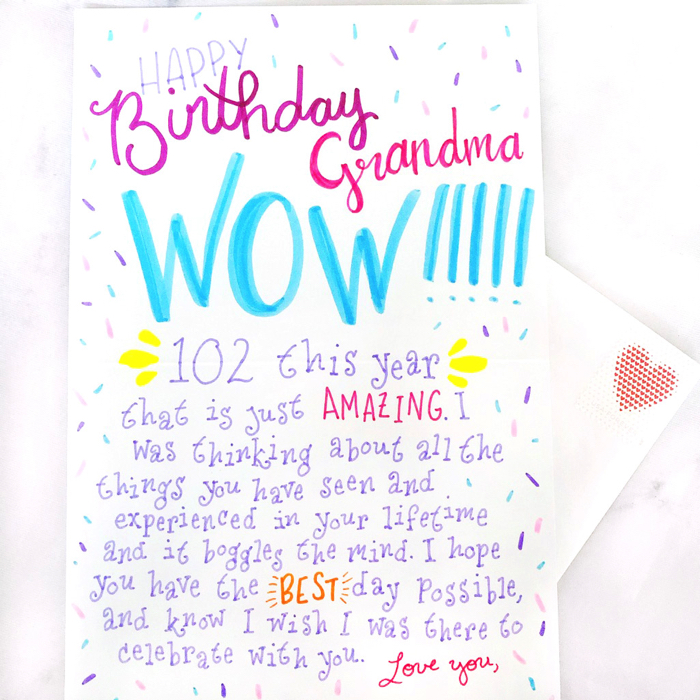 HAPPY
Birthday
Grandma
WOW!!!!!
102 this year
that is just AMAZING. I
was thinking about all the
things you have seen and
experienced in your lifetime
and it boggles the mind. I hope
you have the BEST day possible,
and know I wish I was there to
celebrate with you.
Love you,